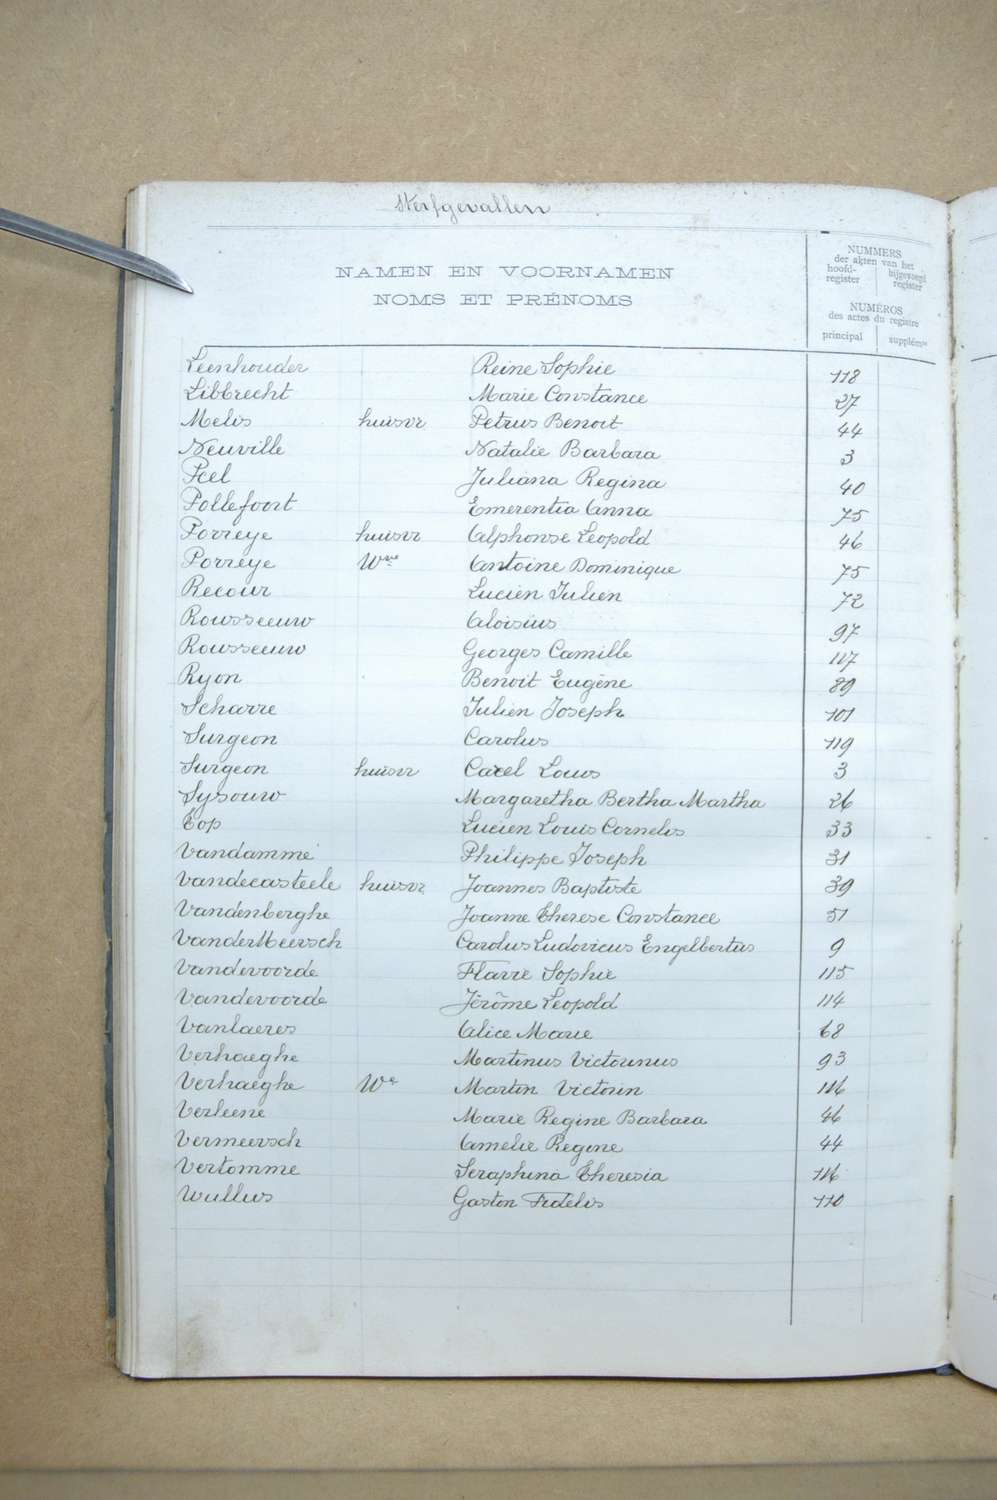 Sterfgevallen
NAMEN EN VOORNAMEN
NOMS ET PRÉNOMS
NUMMERS
der akten van het
hoofd-register bijgevoegd register
NUMÉROS
des actes du registre
principal supplémre
Leenhouder Reine Sophie 118
Libbrecht Marie Constance 27
Melis huisvr Petrus Benoit 44
Neuville Natalie Barbara 3
Peel Juliana Regina 40
Pollefoort Emerentia Anna 75
Porreye huisvr Alphonse Leopold 46
Porreye Wwe Antoine Dominique 75
Recour Lucien Julien 72
Rousseeuw Aloïsius 97
Rousseeuw Georges Camille 117
Ryon Benoit Eugène 89
Scharre Julien Joseph 101
Surgeon Carolus 119
Surgeon huisvr Carel Louis 3
Sysouw Margaretha Bertha Martha 26
Top Lucien Louis Cornelis 33
Vandamme Philippe Joseph 31
Vandecasteele huisvr Joannes Baptiste 39
Vandenberghe Joanne Therese Constance 51
VanderMeersch Carolus Ludovicus Engelbertus 9
Vandevoorde Flavie Sophie 115
Vandevoorde Jérôme Leopold 114
Vanlaeres Alice Marie 68
Verhaeghe Martinus Victorinus 93
Verhaeghe We Martin Victorin 116
Verleene Marie Regine Barbara 46
Vermeersch Amelie Regine 44
Vertomme Seraphina Theresia 116
Wullus Gaston Fidelis 110